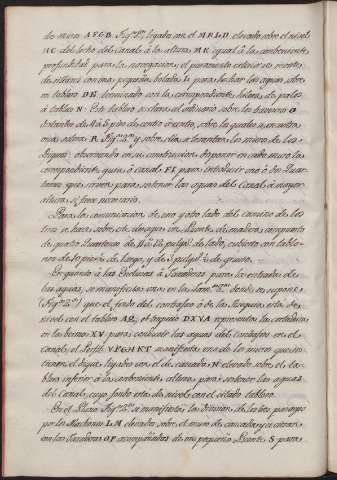 dos muros AFGB. Fig.ª 2.ª ligados con el MRLD elevado sobre el nivel
NC del lecho del Canal à la altura MR igual à la conbeniente
profundidad para la navegacion; el paramento exterior es
de sillares con una pequeña bolada L para hechar las aguas sobre
un tablero DE terminado con la correspondiente hilera de pales
à tablas N. Este tablero se clava al ordinario sobre los traveseros O
distantes de 4 à 5 pies de centro à centro, sobre la quales se encuentra
mas solera R Fig.ª 3.ª y sobre ellas se levantan los muros de los
Diques; observando en su construccion disponer en cada muro la
correspondiente guia à canal FI para introducir una ò dos Ja
que sirven para sostener las aguas del Canal à mayor
altura si fuese necesario.
Para la comunicacion de uno y otro lado del camino de los
se hace sobre el desague un Puente de madera compuesto
de quatro Quartones de 11 à 12 pulg.s de lado, cubierto con tablo-
nes de 10 pies de largo, y de 3 pulg.s de grueso.
En quanto à las Esclusas à Tajaderas para la entrada de
las aguas, se manifiesta una en la Lam.ª 7.ª donde se supone
(Fig.ª 2.ª) que el fondo del contrafoso ò de las Azequias esta de
nivel con el tablero AQ; el trapecio DXVA representa la cortadura
en la berma XV para conducir las aguas del contrafoso en el
canal; el Perfil VFGHKT manifiesta uno de los muros que sos-
tienen el dique ligados con el de cascada N elevado sobre el ta-
blero inferior à la conbeniente altura para sostener las aguas
del Canal, cuyo fondo esta de nivel con el citado tablero.
En el Plano Fig.ª 3.ª se manifiesta la division de los
por los Machones LM elevados sobre el muro de cascada, y se cierran
con las Tajaderas OP acompañadas de un pequeño Puente S para